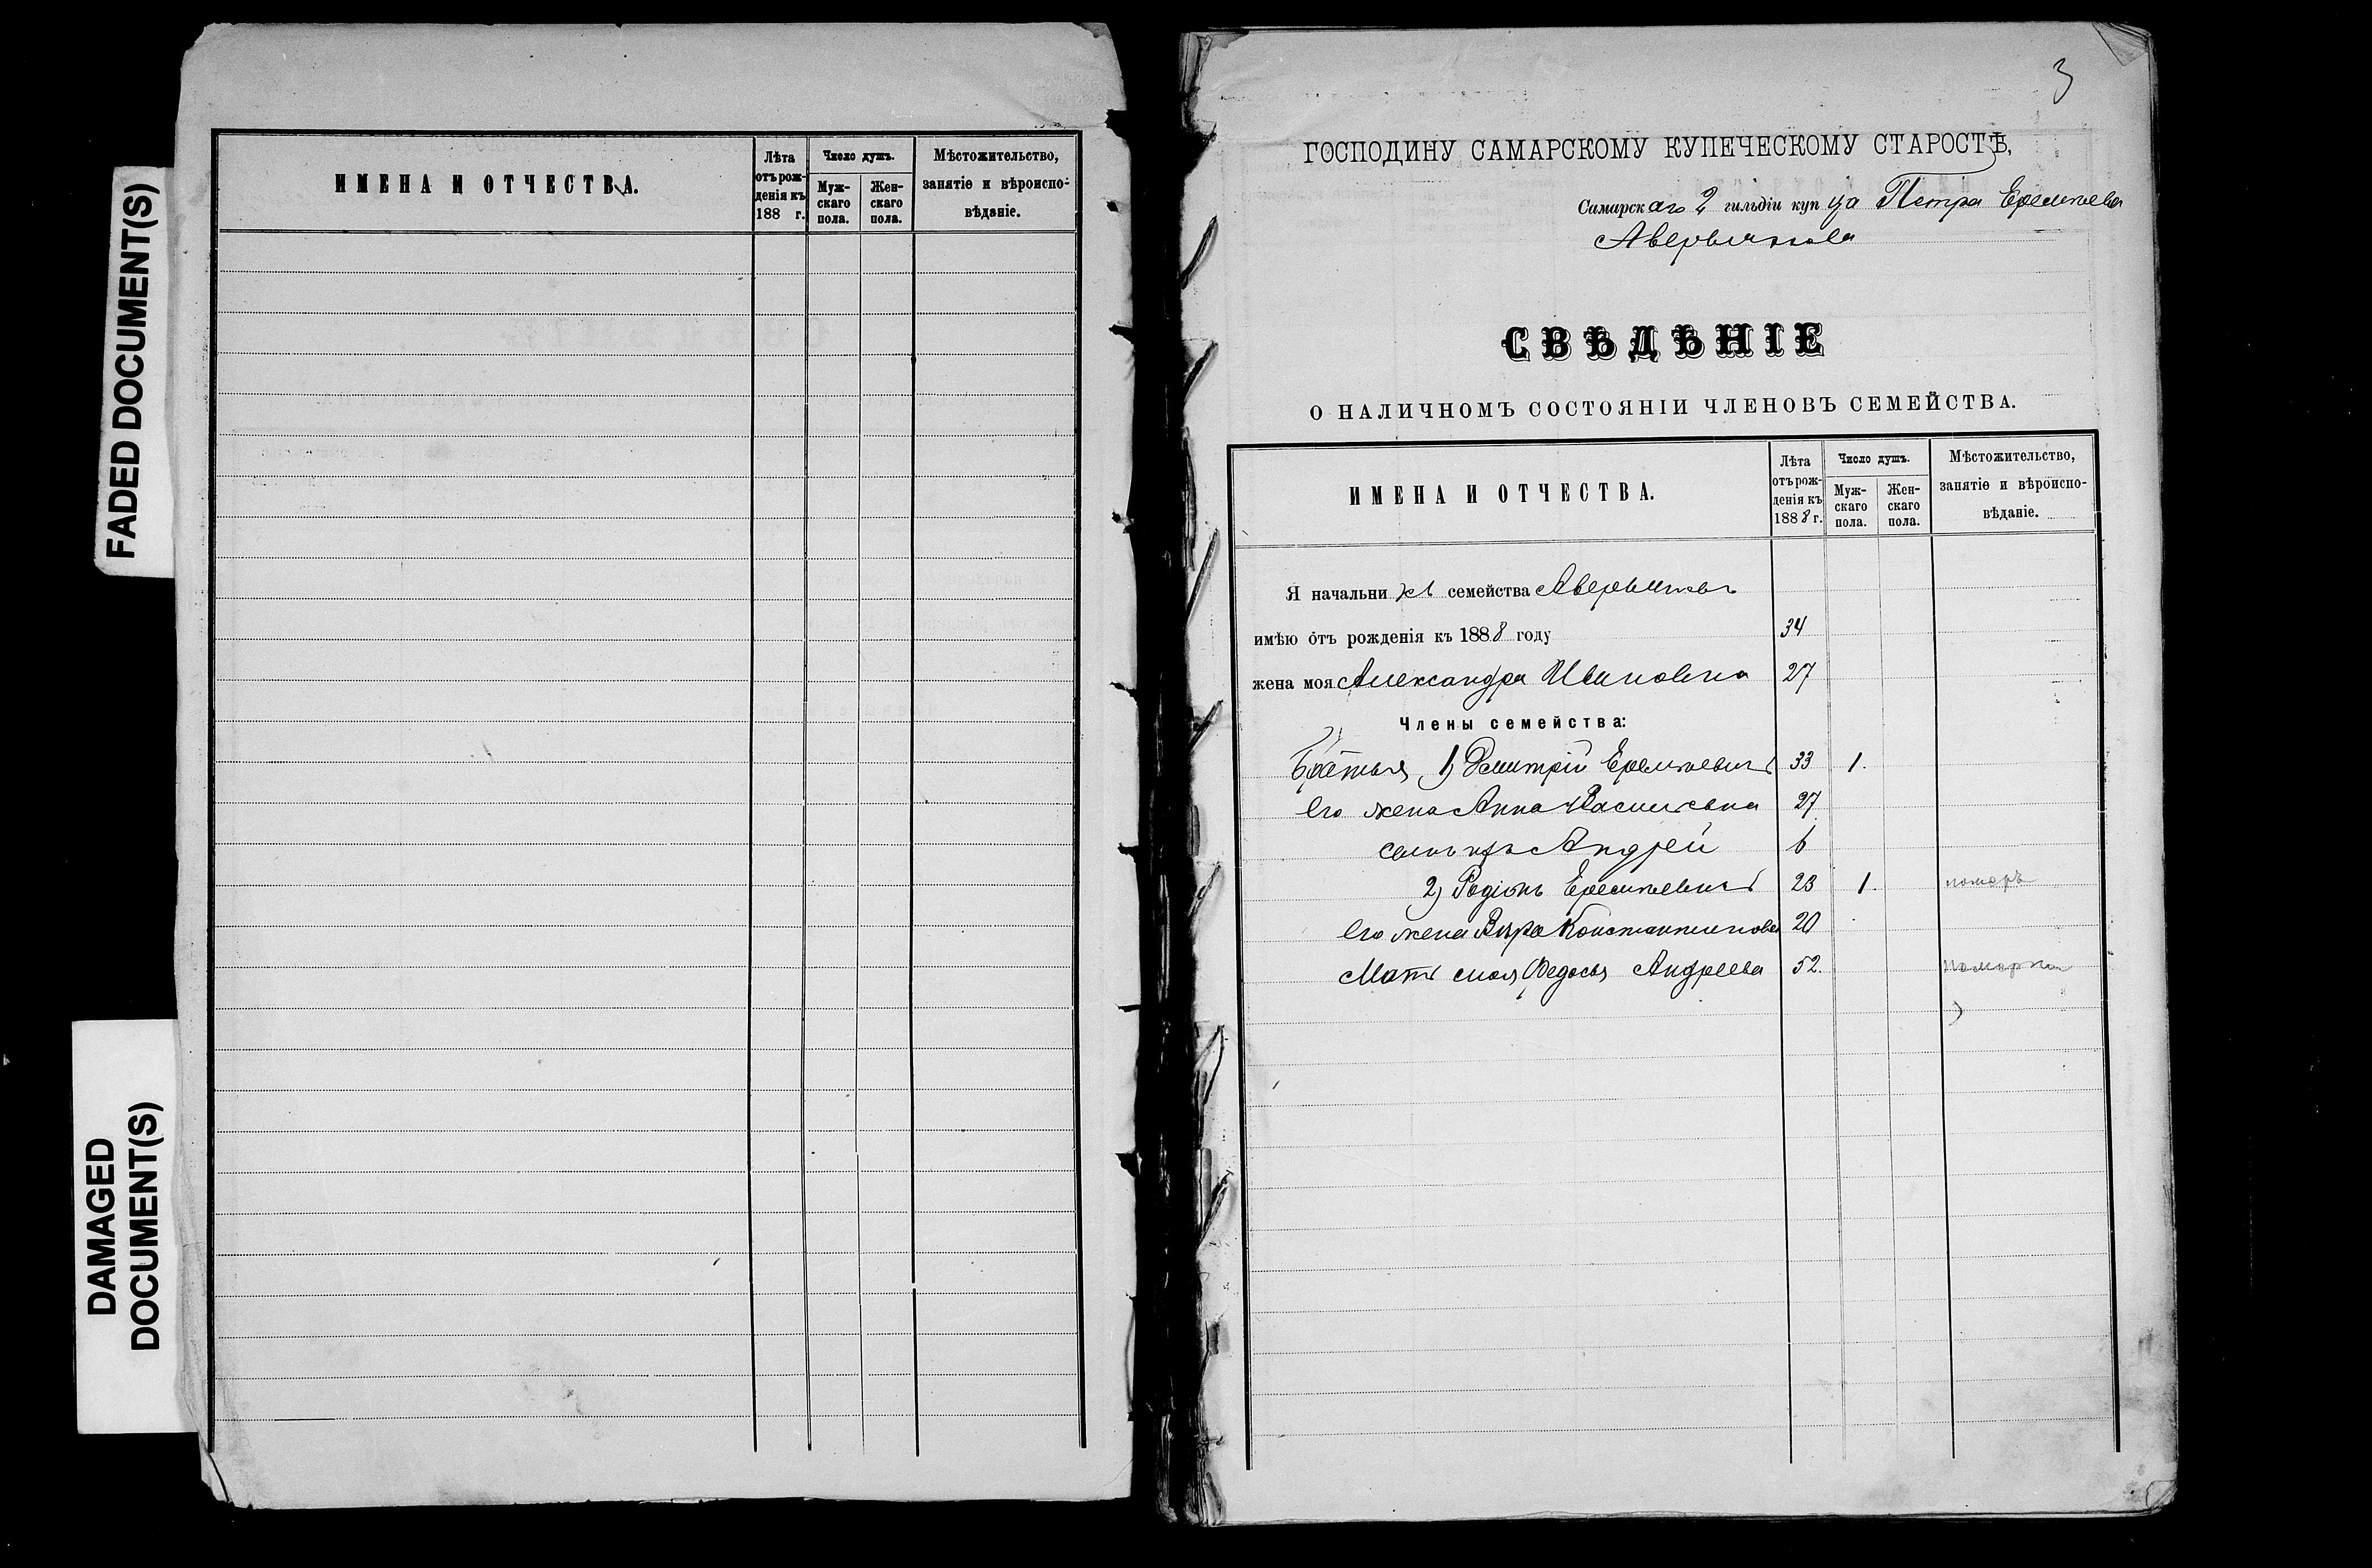 FADED DOCUMENT(S)
DAMAGED
DOCUMENT(S)
ИМЕНА И ОТЧЕСТВА.
Лѣта
отъ рож-
денія къ
188 г.
Число душъ.
Муж-
скаго
пола.
Жен-
скаго
пола.
Мѣстожительство,
занятіе и вѣроиспо-
вѣданіе.
3
ГОСПОДИНУ САМАРСКОМУ КУПЕЧЕСКОМУ СТАРОСТѢ,
Самарскаго 2 гильдіи купца Петра Еремѣева
Аверьянова
СВѢДѢНІЕ
О НАЛИЧНОМЪ СОСТОЯНІИ ЧЛЕНОВЪ СЕМЕЙСТВА.
ИМЕНА И ОТЧЕСТВА.
Лѣта
отъ рож-
денія къ
1888 г.
Число душъ.
Муж-
скаго
пола.
Жен-
скаго
пола.
Мѣстожительство,
занятіе и вѣроиспо-
вѣданіе.
Я начальникъ семейства Аверьяновъ
имѣю отъ рожденія къ 1888 году 34
жена моя Александра Ивановна 27
Члены семейства:
Братья 1) Дмитрій Еремѣевичъ 33 1.
Его жена Анна Васильевна 27
сынъ ихъ Андрей 6
2) Родіонъ Еремѣевичъ 23 1. померъ
Его жена Вѣра Константинова 20
Мать моя Федосья Андреева 52. померла